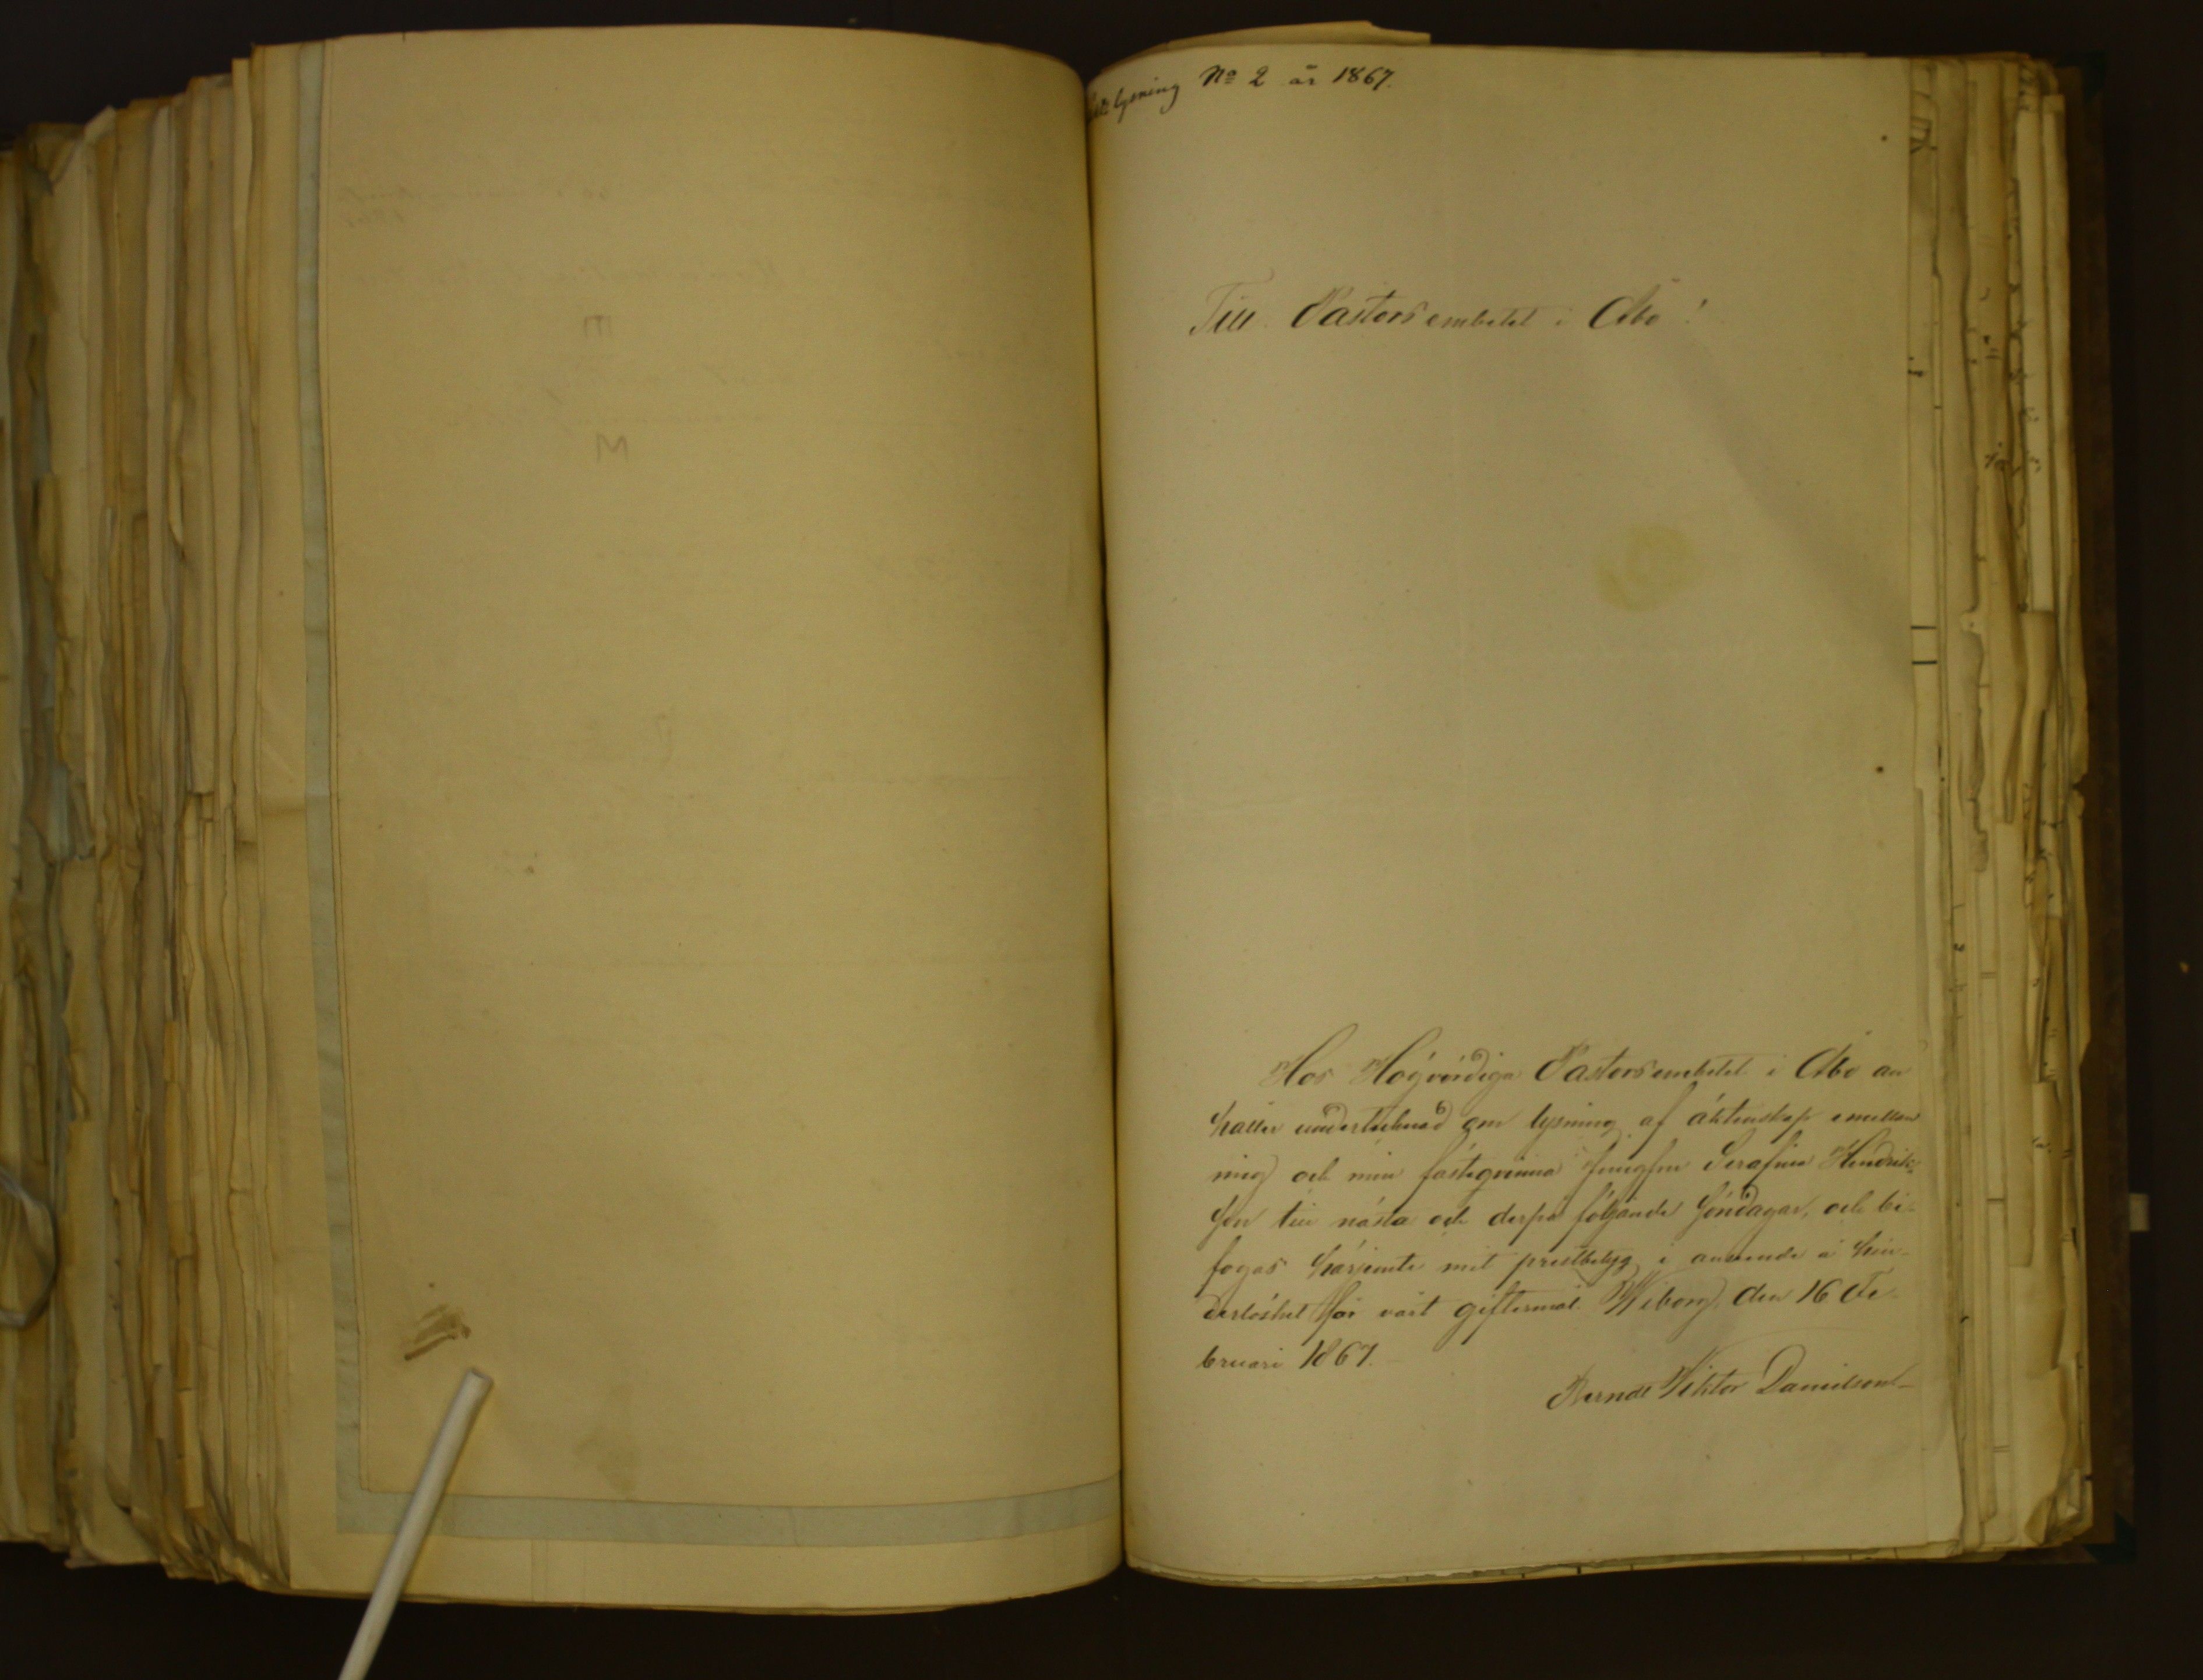 lysning No 2 år 1867.
Till Pastorsembetet i Åbo!
Hos Högvördiga Pastorsembetet i Åbo an
håller undertecknad om lysning af äktenskap emellan
mig och min fästeqvinna Jungfru Serafina Hendrik-
son till nästa och derpå följande söndagar, och bi-
fogas härjemte mit prestbetyg i anseende å hin-
derlöshet för vårt giftermål. Wiborg den 16 Fe-
bruari 1867.
Berndt Wiktor Danielson